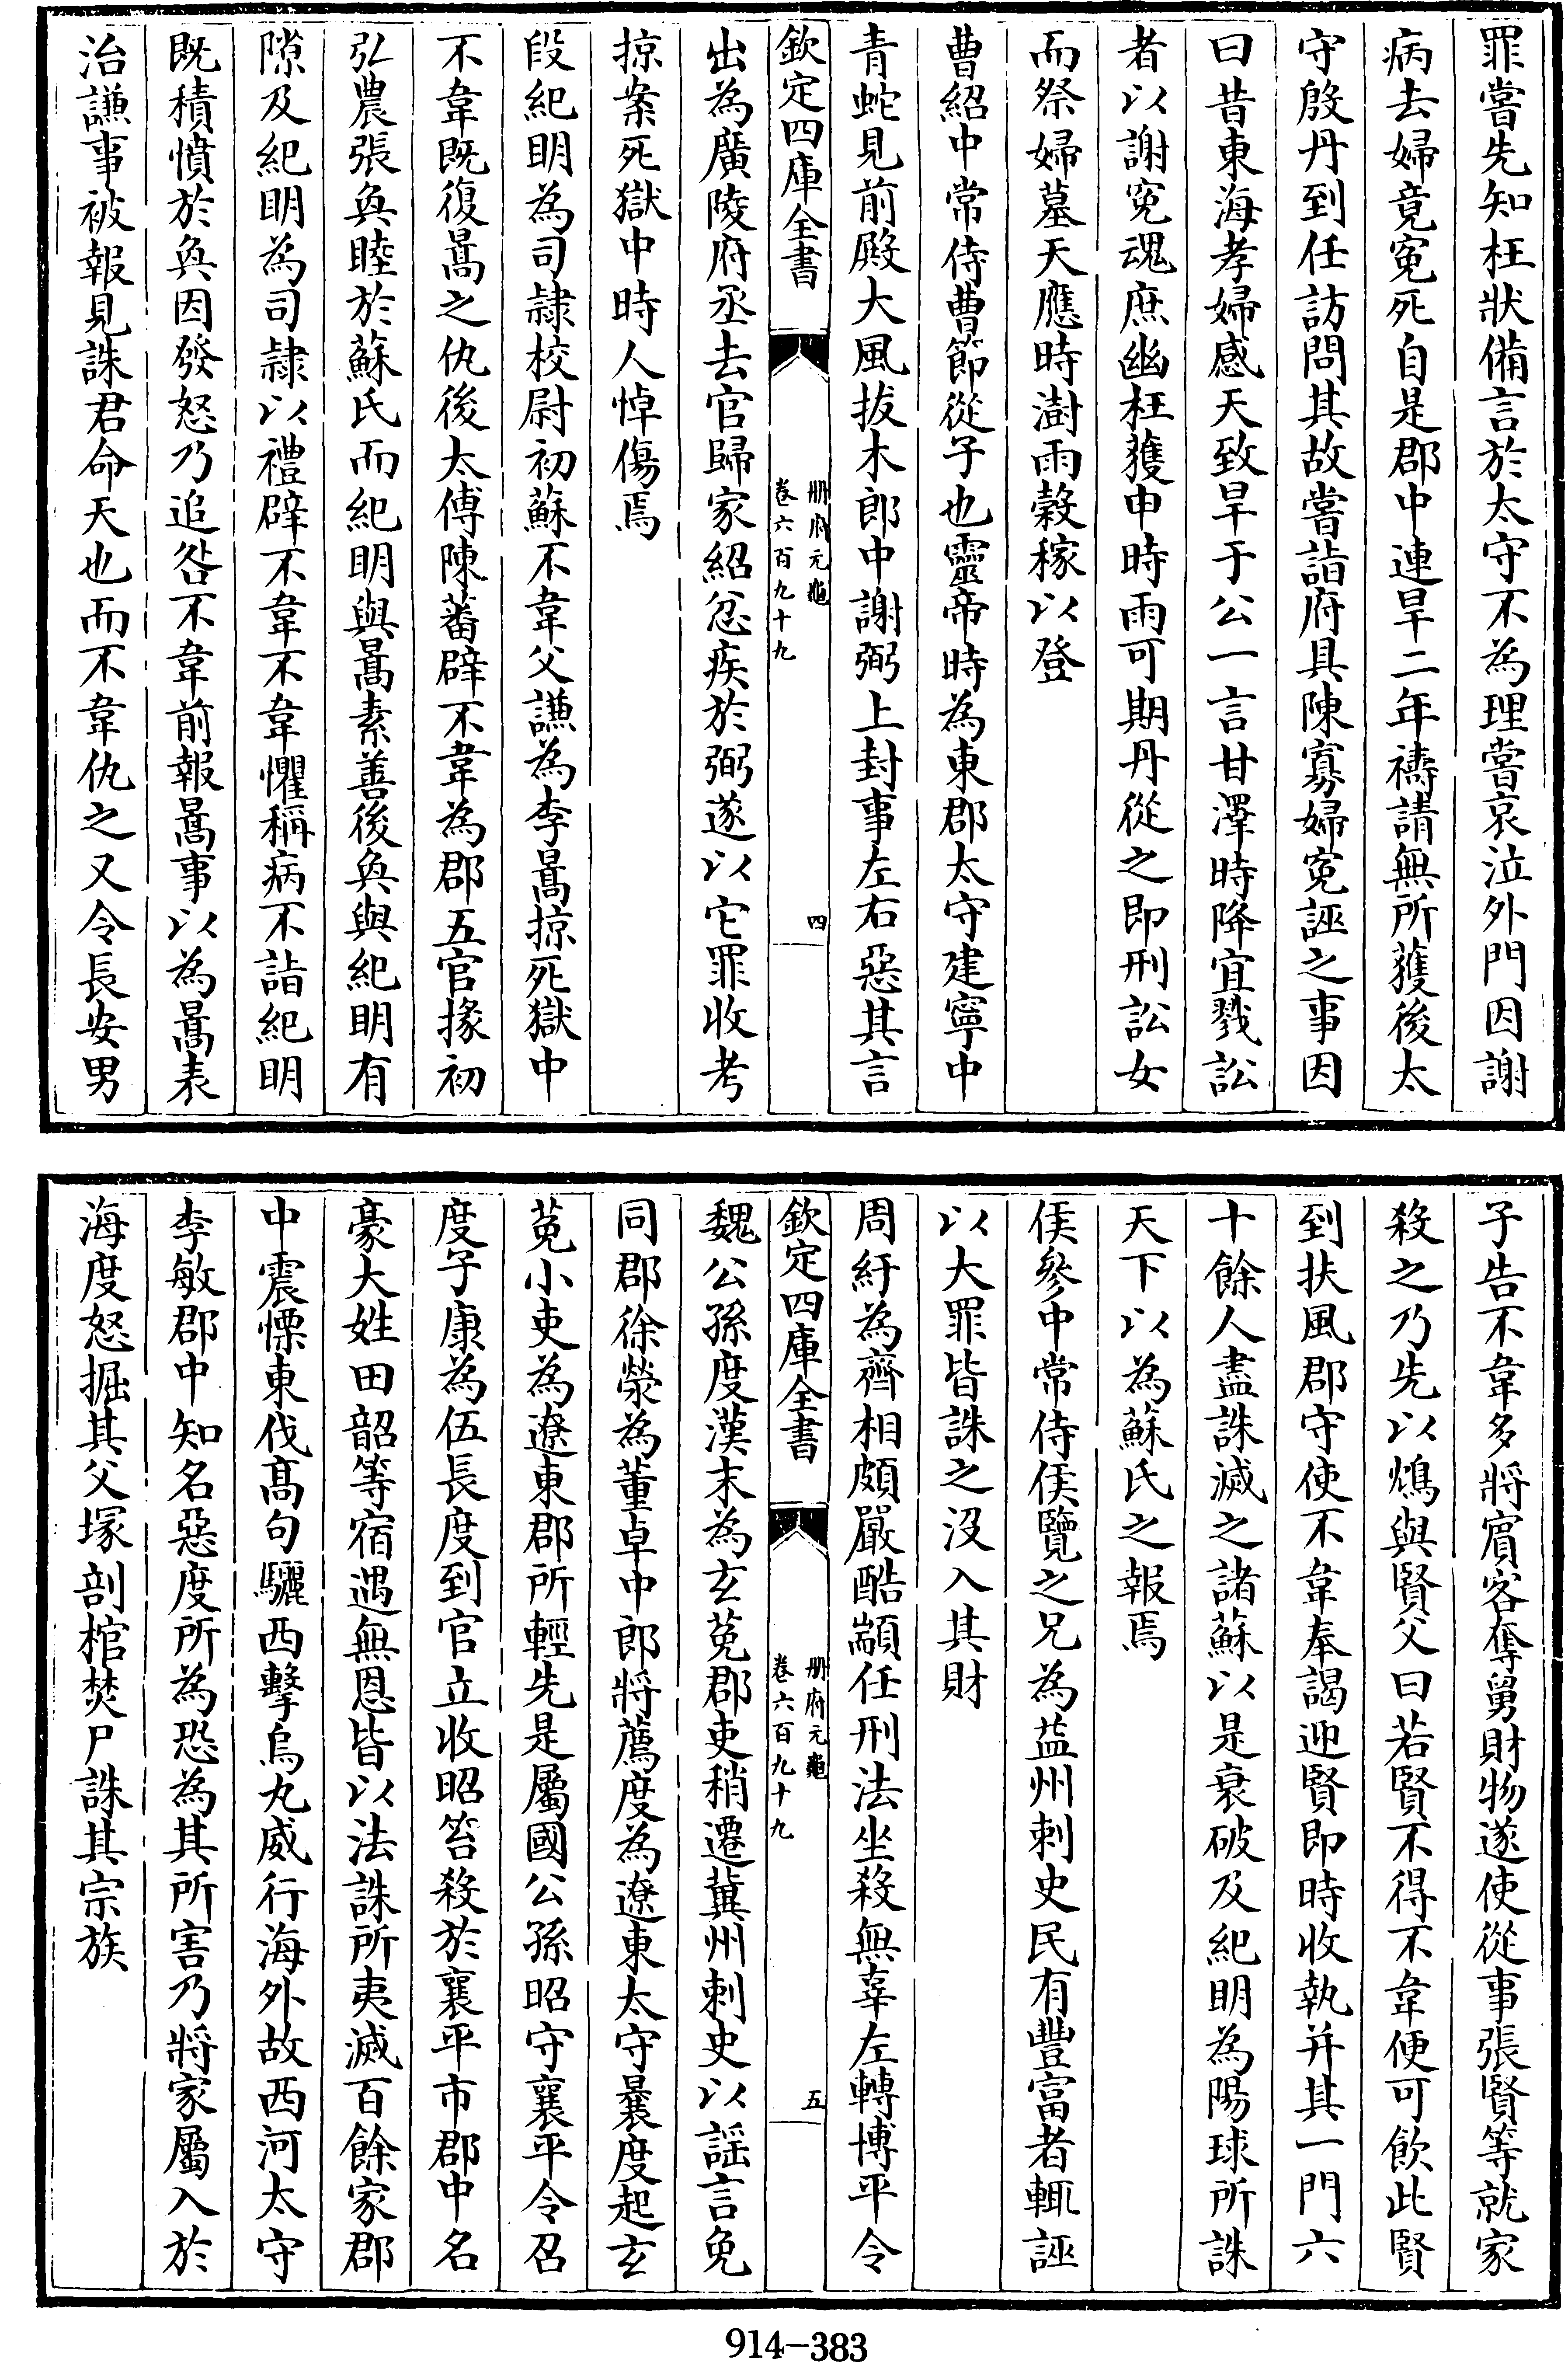 罪嘗先知枉狀備言於太守不為理嘗哀泣外門因謝
病去婦竟寃死自是郡中連旱二年禱請無所獲後太
守殷丹到任訪問其故嘗詣府具陳寡婦寃誣之事因
曰昔東海孝婦感天致旱于公一言甘澤時降宜戮訟
者以謝寃魂庶幽枉獲申時雨可期丹從之即刑訟女
而祭婦墓天應時澍雨穀稼以登
曹紹中常侍曹節從子也靈帝時為東郡太守建寧中
青蛇見前殿大風拔木郎中謝弼上封事左右惡其言
欽定四庫全書
册府元龜
卷六百九十九
四
出為廣陵府丞去官歸家紹忿疾於弼遂以它罪收考
掠案死獄中時人悼傷焉
段紀明為司隷校尉初蘇不韋父謙為李暠掠死獄中
不韋既復暠之仇後太傅陳蕃辟不韋為郡五官掾初
弘農張奐睦於蘇氏而紀明與暠素善後奐與紀明有
隙及紀明為司隷以禮辟不韋不韋懼稱病不詣紀明
既積憤於奐因發怒乃追咎不韋前報暠事以為暠表
治謙事被報見誅君命天也而不韋仇之又令長安男
子告不韋多將賓客奪舅財物遂使從事張賢等就家
殺之乃先以鴆與賢父曰若賢不得不韋便可飲此賢
到扶風郡守使不韋奉謁迎賢即時收執并其一門六
十餘人盡誅滅之諸蘇以是衰破及紀明為陽球所誅
天下以為蘇氏之報焉
侯參中常侍侯覽之兄為益州刺史民有豐富者輒誣
以大罪皆誅之沒入其財
周紆為齊相頗嚴酷顓任刑法坐殺無辜左轉博平令
欽定四庫全書
册府元龜
卷六百九十九
五
魏公孫度漢末為玄菟郡吏稍遷冀州刺史以謡言免
同郡徐滎為董卓中郎將薦度為遼東太守㬥度起玄
菟小吏為遼東郡所輕先是屬國公孫昭守襄平令召
度子康為伍長度到官立收昭笞殺於襄平市郡中名
豪大姓田韶等宿遇無恩皆以法誅所夷滅百餘家郡
中震慄東伐高句驪西擊烏丸威行海外故西河太守
李敏郡中知名惡度所為恐為其所害乃將家屬入於
海度怒掘其父塚剖棺焚尸誅其宗族
914-383